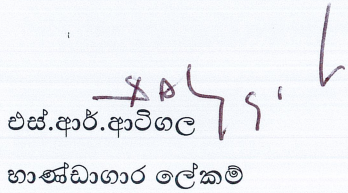 එස්.ආර්.ආටිගල
භාණ්ඩාගාර ලේකම්